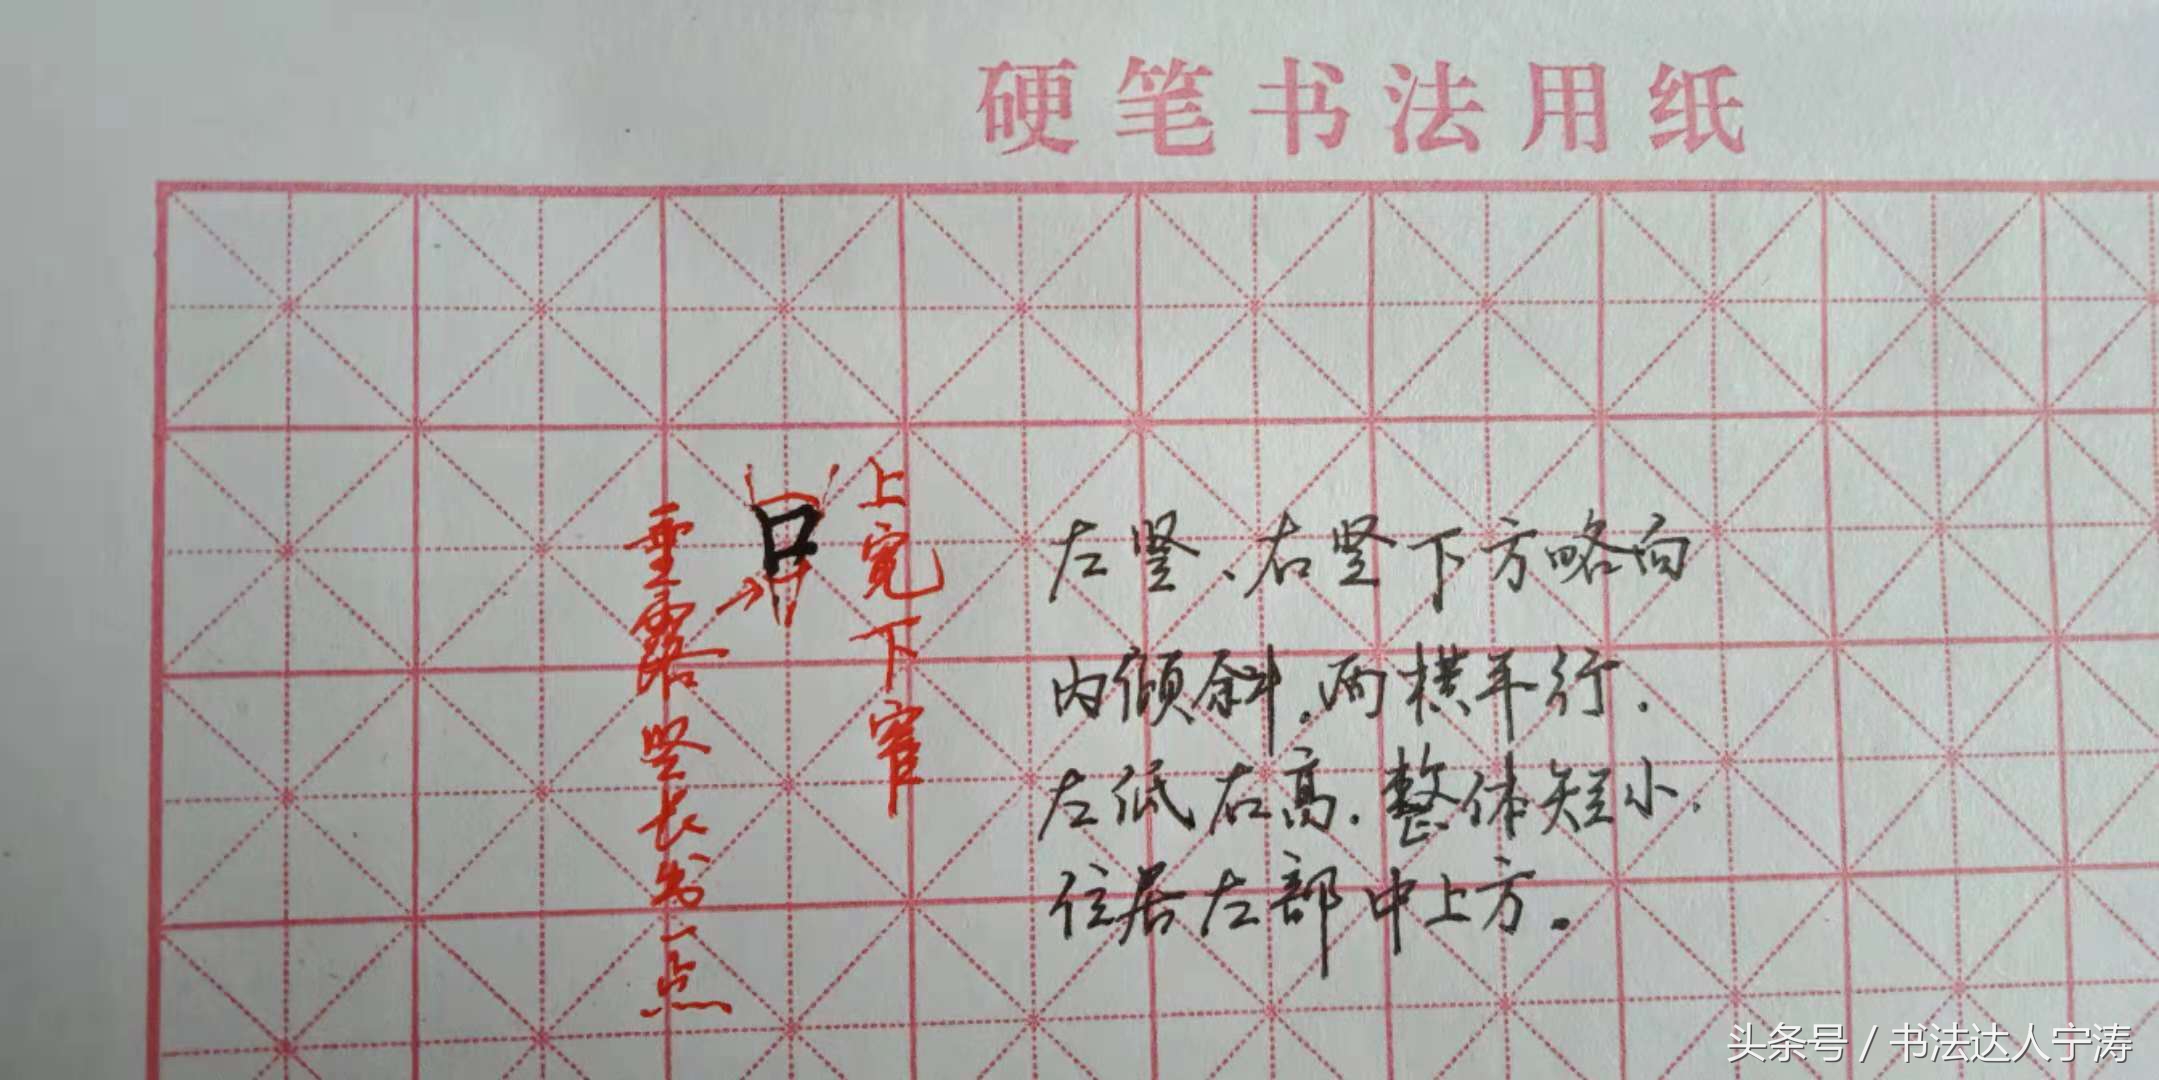 硬笔书法用纸
口
上宽下窄
垂露竖长出一点
左竖、右竖下方略向
内倾斜.两横平行.
左低右高.整体短小.
位居左部中上方。
头条号 / 书法达人宁涛